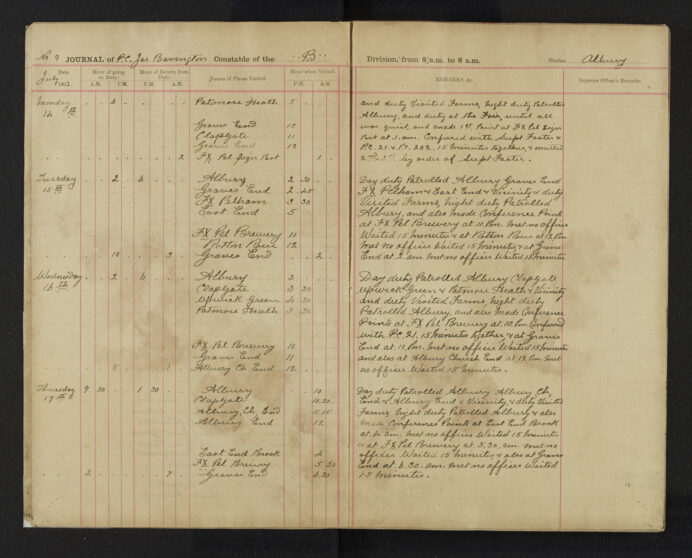 No 9 JOURNAL of P.C. Jas Bavington Constable of the "B" Division, from 8 a.m. to 8 a.m. Station Albury
Date. Hour of going on Duty. Hour of Return from Duty. Names of Places Visited. Hour when Visited. REMARKS, &c. Superior Officer's Remarks.
July A.M. P.M. A.M. P.M. P.M. A.M.
Monday 14th 6 Patmore Heath 5
Graves End 10
Clapgate 11
Graves End 12
2 FX Pel Sign Post 1
Tuesday 15th 2 6 Albury 2 30
Graves End 2 45
FX Pelham 3 30
East End 5
FX Pel Brewery 11
12
10 3 Graves End 2
Wednesday 16th 2 6 Albury 3
Clapgate 3 30
Upwick Green 4 30
Patmore Heath 5 30
FX Pel Brewery 10
Graves End 11
Albury Ch End 12
Thursday 17th 9 30 1 30 Albury 10
Clapgate 10.30
Albury, Ch, End
Albury End 12
East End Brook 4
FX Pel Brewery 5 30
2 7 Graves End 6.30
and duty Visited Farms, Night duty Patrolled
Albury, and duty at the Fair, until all
was quiet, and made 1st Point at FX Pel Sign
Post at 1. am. Confered with Supt Foster &
P.C. 21. & P.C. 202. 15 Minutes together, & omitted
2nd 3rd by order of Supt Foster.
Day duty Patrolled Albury Graves End
FX Pelham & East End & Vicinity & duty
Visited Farms, Night duty Patrolled
Albury, and also made Conference Point
at FX Pel Brewery at 11. Pm. Met no officer
Waited 15 minutes & at
Met no officer Waited 15 Minutes, & at Graves
End at 2. am. Met no officer Waited 15 Minutes
Day duty Patrolled Albury Clapgate
Upwick Green & Patmore Heath & Vicinity
and duty Visited Farms, Night duty
Patrolled Albury, and also Made Conference
Points at FX Pel Brewery at 10. Pm Confered
with P.C. 21, 15 Minutes together, & at Graves
End at 11. Pm. Met no officer Waited 15 Minutes
and also at Albury Church End at 12. Pm. Met
no officer Waited 15 Minutes.
Day duty Patrolled Albury Albury, Ch,
End & Albury End & Vicinity, & duty Visited
Farms, Night duty Patrolled Albury, & also
made Conference Points at East End Brook
at 4. am. Met no officer Waited 15 Minutes
& at FX Pel Brewery at 5.30, am. Met no
officer Waited 15 Minutes & also at Graves
End at 6.30. am. Met no officer Waited
15 Minutes.